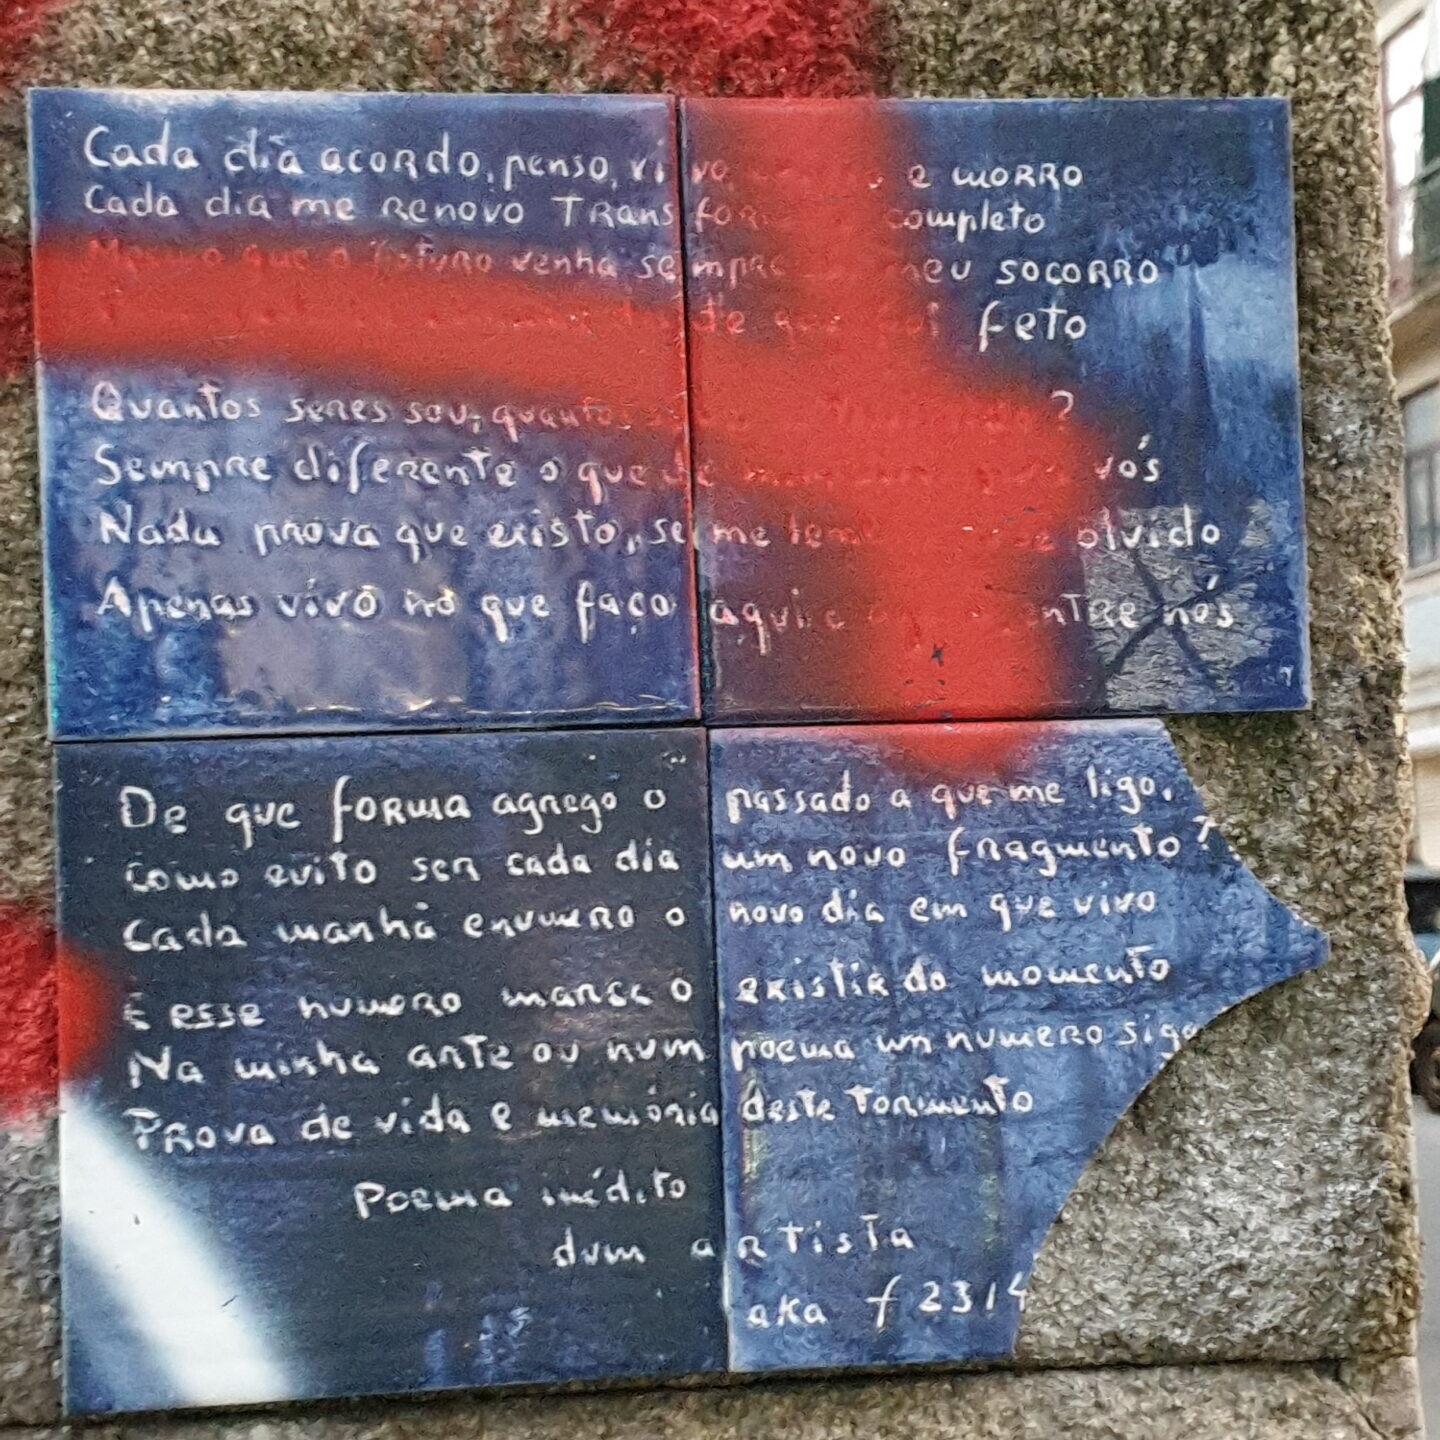 Cada dia acordo, penso, vivo, e morro
Cada dia me renovo Trans completo
Mesmo que o futuro venha sempre meu socorro
de que feto
Quantos seres sou, quantos ?
Sempre diferente o que de vós
Nada prova que existo, se me olvido
Apenas vivo no que faço aqui e entre nós
De que forma agrego o passado a que me ligo,
Como evito ser cada dia um novo fragmento?
Cada manhã enumero o novo dia em que vivo
E esse numero marca o existir do momento
Na minha arte ou num poema um numero sigo
Prova de vida e memória deste tormento
Poema inédito
dum artista
aka f 2314